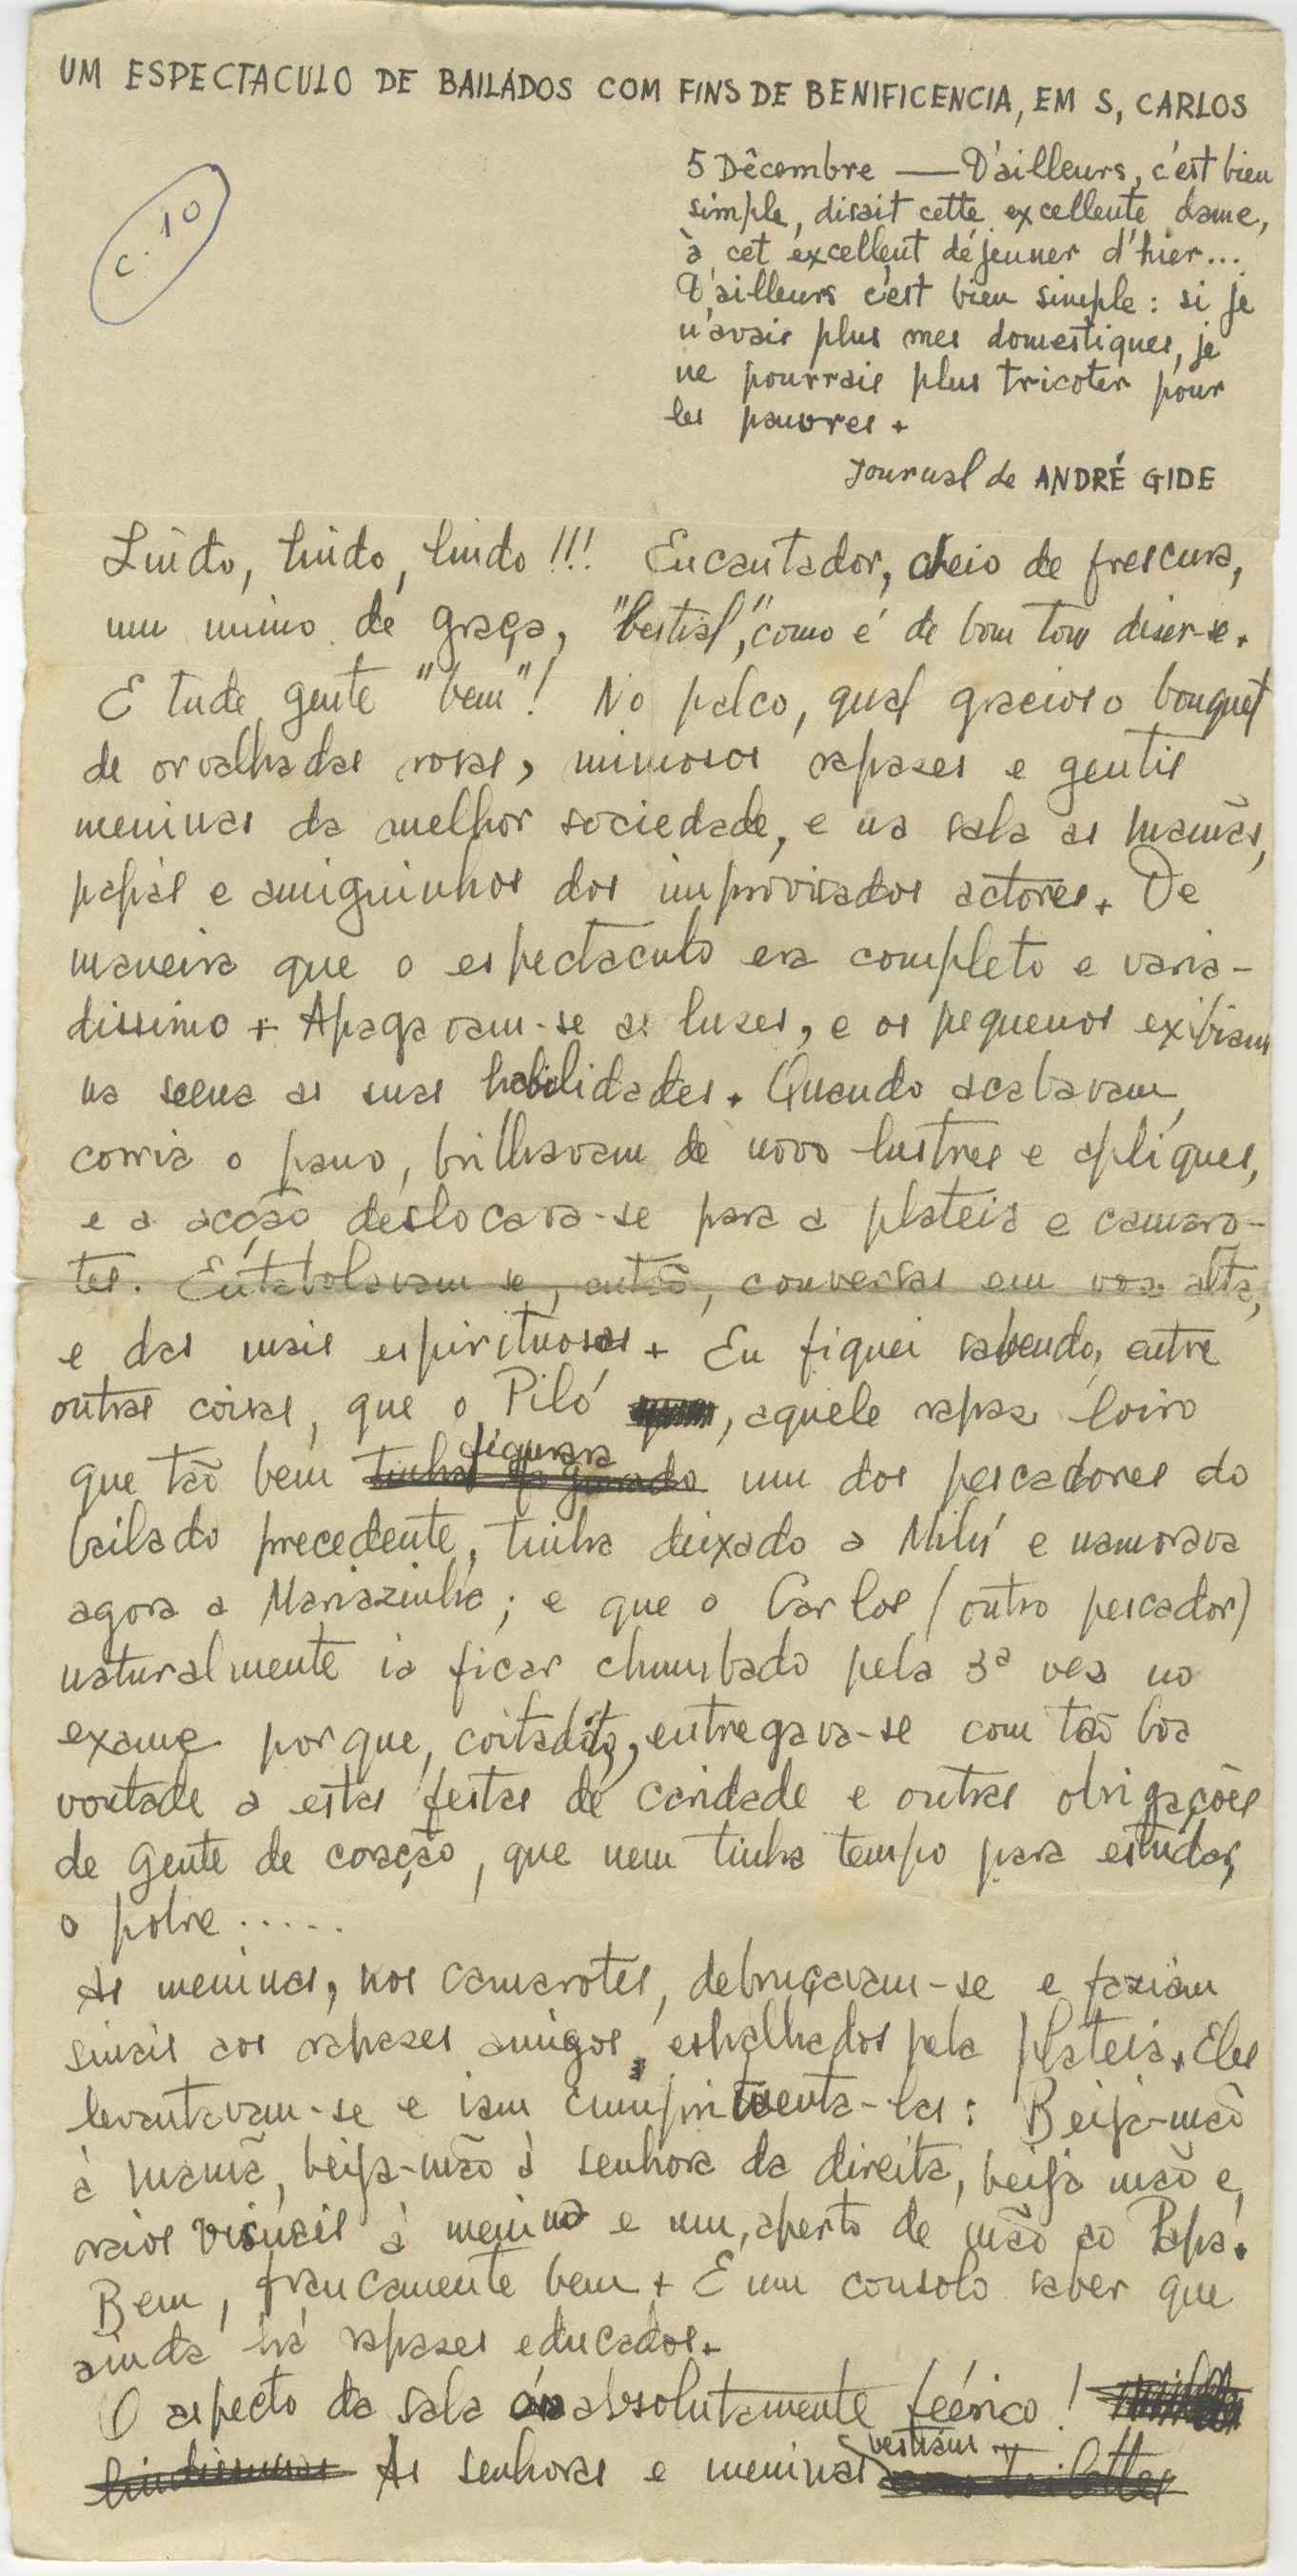 UM ESPECTACULO DE BAILADOS COM FINS DE BENIFICENCIA, EM S, CARLOS
C. 10
5 Décembre — D'ailleurs, c'est bien
simple, disait cette excellente dame,
à cet excellent déjeuner d'hier...
D'ailleurs c'est bien simple : si je
n'avais plus mes domestiques, je
ne pourrais plus tricoter pour
les pauvres.
Journal de ANDRÉ GIDE
Lindo, lindo, lindo !!! Encantador, cheio de frescura,
um mimo de graça, "bestial", como é de bom tom diser-se.
E tude gente "bem"! No palco, qual gracioso bouquet
de orvalhadas rosas, mimosos rapases e gentis
meninas da melhor sociedade, e na sala as mamãs,
papás e amiguinhos dos improvisados actores. De
maneira que o espectaculo era completo e varia-
dissimo. Apagavam-se as luses, e os pequenos exibiam
na scena as suas habilidades. Quando acabavam,
corria o pano, brilhavam de novo lustres e apliques,
e a acção deslocava-se para a plateia e camaro-
tes. Entabolavam se, então, conversas em voz alta,
e das mais espirituosas. Eu fiquei sabendo, entre
outras coisas, que o Piló, aquele rapaz loiro
que tão bem figurara um dos pescadores do
bailado precedente, tinha deixado a Milú e namorava
agora a Mariazinha; e que o Carlos (outro pescador)
naturalmente ia ficar chumbado pela 3ª vez no
exame porque, coitadito, entregava-se com tão boa
vontade a estas festas de caridade e outras obrigações
de gente de coração, que nem tinha tempo para estudar,
o pobre.....
As meninas, nos camarotes, debruçavam-se e faziam
sinais aos rapases amigos, espalhados pela plateia. Eles
levantavam-se e iam cumprimenta-las: Beija-mão
à mamã, beija-mão à senhora da direita, beija mão e,
raios visuais à menina e um, aperto de mão ao Papá.
Bem, francamente bem. E um consolo saber que
ainda há rapases educados.
O aspecto da sala absolutamente feérico!
As senhoras e meninas vestiam